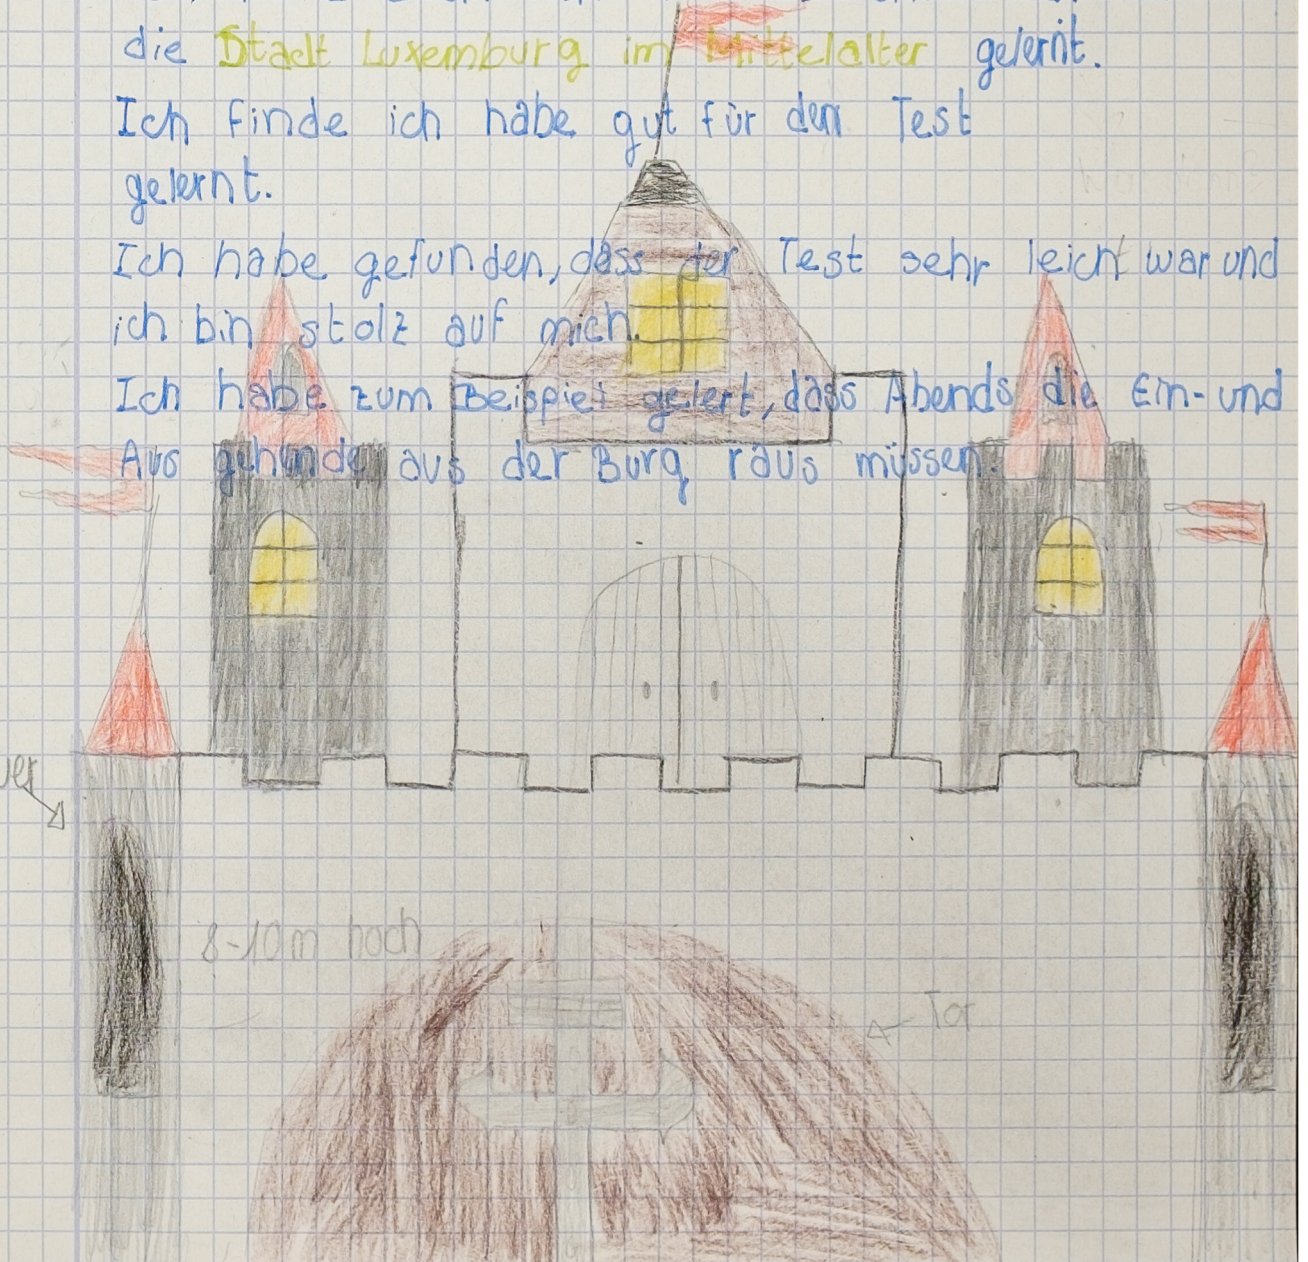 die Stadt Luxemburg im Mittelalter gelernt.
Ich finde ich habe gut für den Test
gelernt.
Ich habe gefunden, dass der Test sehr leicht war und
ich bin stolz auf mich.
Ich habe zum Beispiel gelert, dass Abends die Ein- und
Aus gehende aus der Burg raus müssen.
8-10m hoch
Tor